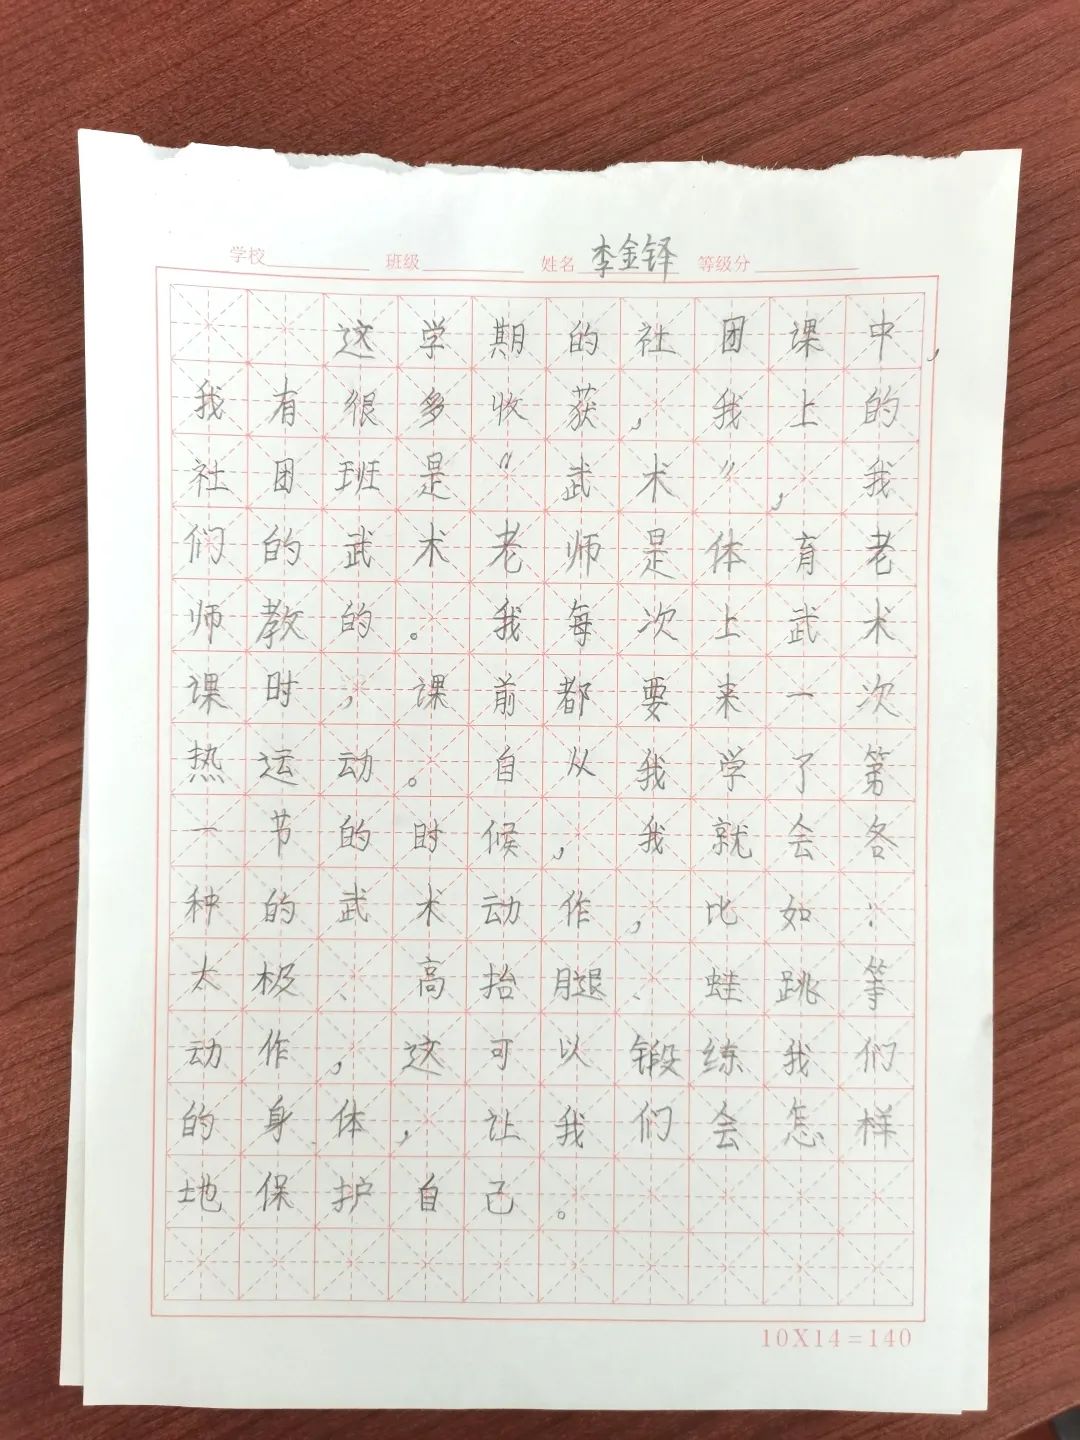 学校 班级 姓名 李金铎 等级分
这学期的社团课中，
我有很多收获，我上的
社团班是“武术”，我
们的武术老师是体育老
师教的。我每次上武术
课时，课前都要来一次
热运动。自从我学了第
一节的时候，我就会各
种的武术动作，比如：
太极、高抬腿、蛙跳等
动作，这可以锻练我们
的身体，让我们会怎样
地保护自己。
10X14=140